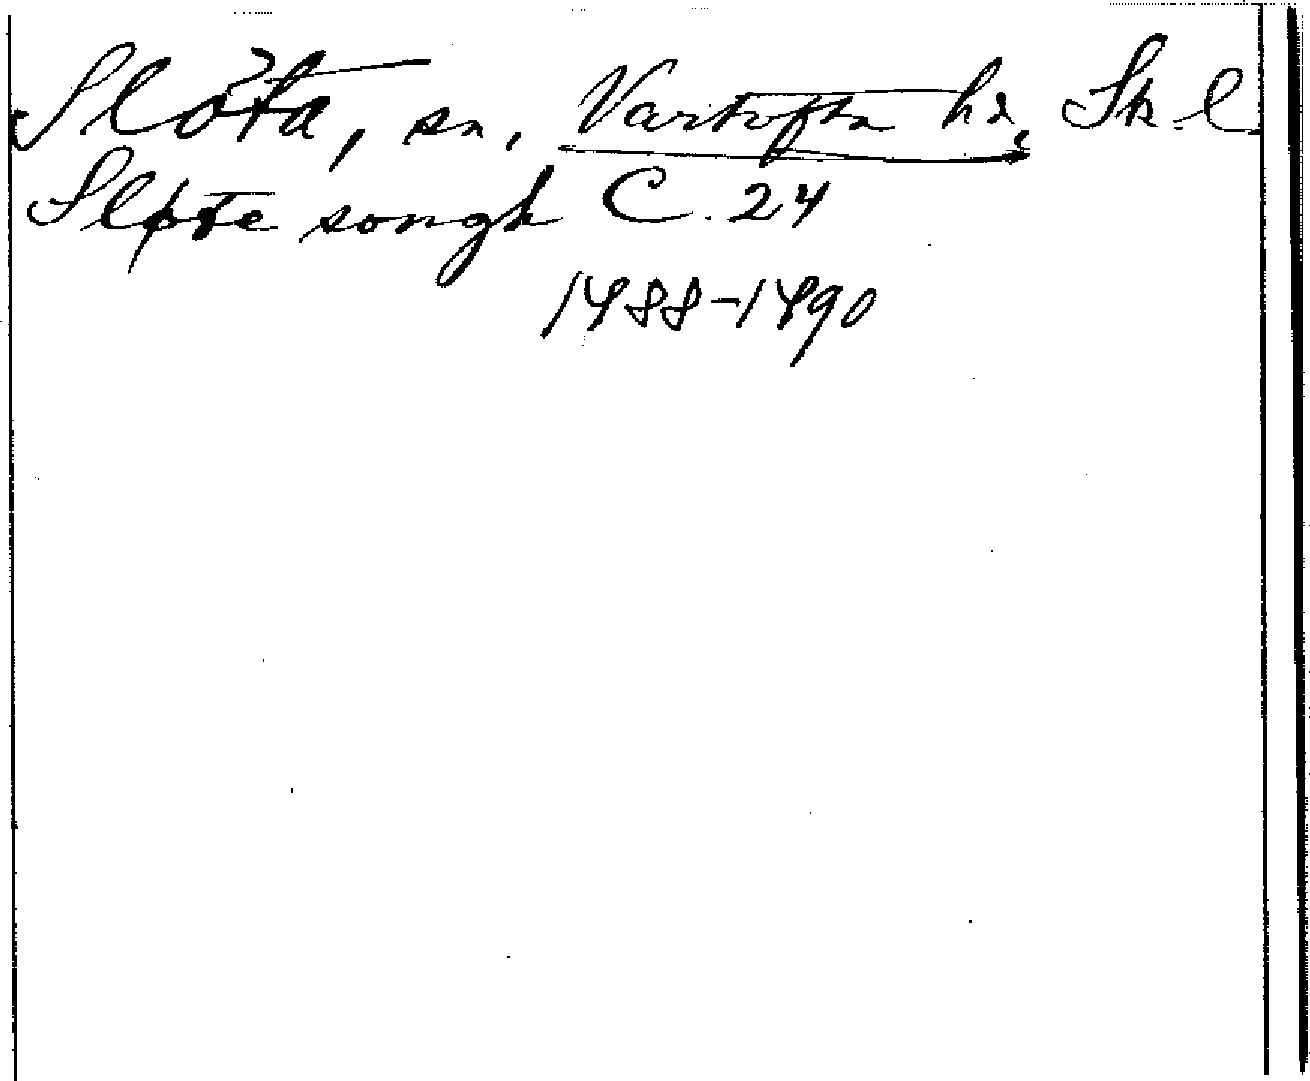 Slöta, sn. Vartofta hd. Sk. l.
Sløte songh C. 24
1488-1490